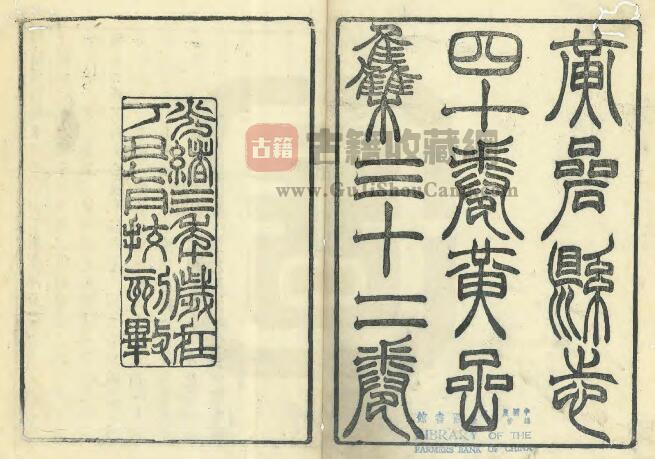 黃嵒縣志
四十卷黃嵒
集三十二卷
光緒三年歲在
丁丑七月挍刊
古籍
古籍收藏網
www.GuJiShouCang.com
LIBRARY OF THE
FARMERS BANK OF CHINA